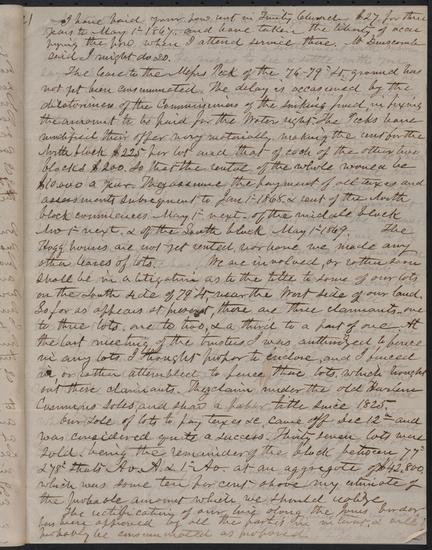 I have paid your pew rent in Trinity Church $27 for three
years to May 1st 1867. and have taken the liberty of occu
pying the pew when I attend service there. Mr Duscombe
said I might do so.
The lease to the Messrs Peck of the 76-79th St. ground has
not yet been consummated. The delay is occasioned by the
dilatoriness of the Commissioners of the Sinking fund, in fixing
the amount to be paid for the Water right. The Pecks have
modified their offer very materially, making the rent for the
North block $225 per lot and that of each of the other two
blocks $200. So that the rental of the whole would be
$10,000 a year. They assume the payment of all taxes and
assessments subsequent to Jany 1st 1868. & rent of the North
block commences May 1st next. of the middle block
Nov 1st next. & of the South block May 1st 1869. The
Hogg houses are not yet rented, nor have we made any
other leases of lots. We are involved, or rather soon
shall be in a litigation as to the title to some of our lots
on the South side of 79th St. near the West side of our land.
So far as appears at present, there are three claimants, one
to three lots, one to two, & a third to a part of one. At
the last meeting of the trustees I was authorized to fence
in any lots I thought proper to enclose, and I fenced
or rather attempted to fence these lots, which brought
out these claimants. They claim under the old Harlem
Commons Sales, and show a paper title since 1825.
Our sale of lots to pay taxes &c came off Decr 12th and
was considered quite a success. Thirty seven lots were
sold, being the remainder of the block between 77th
& 78th Sts. Av. A. & 1st Av. at an aggregate of $42,800,
which was some ten per cent above my estimate of
the probable amount which we should realize.
The rectification of our line along the Jones border
has been approved by all the parties in interest & will
probably be consummated as proposed.